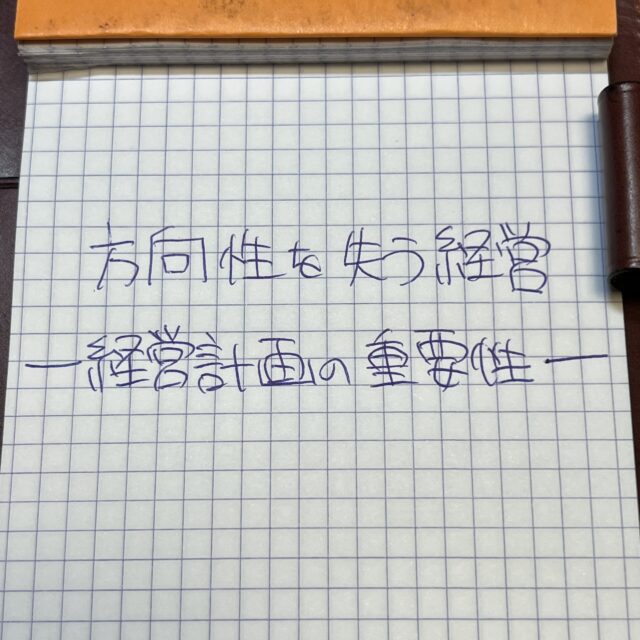 方向性を失う経営
―経営計画の重要性―